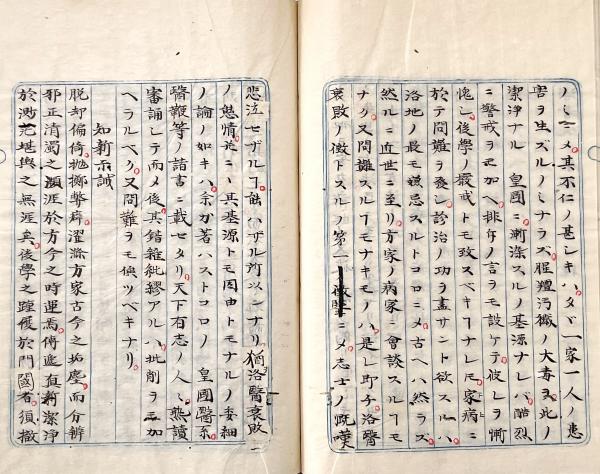 ノミニメ其不仁ノ甚シキハタヾ一家一人ノ患
害ヲ生ズルノミナラズ腥羶汚穢ノ大毒ヲ此ノ
潔浄ナル 皇國ニ漸滌スルノ基源ナレバ酷烈
ニ警戒ヲ加ヘ排斥ノ言ヲモ設ケテ彼レヲ慚
愧シ後學ノ嚴戒トモ致スベキコナレ𪜈家病ニ
於テ問難ヲ發シ診治ノ功ヲ盡サント欲スルハ
洛地ノ最モ諱忌スルトコロニメ古ヘハ然ラズ
然ルニ近世ニ至リ方家ノ病家ニ會談スルコモ
ナク又問難スルコモナキモノハ是レ即チ洛醫
衰敗ノ徴トスルノ第一徴ニメ志士ノ慨嘆
悲泣セザルコ能ハザル所以ンナリ猶洛醫衰敗
ノ情并ニ其基源トモ因由トモナルノ委細
ノ論ノ如キハ余ガ著ハストコロノ 皇國醫系
醫鞭等ノ諸書ニ載セタリ天下有志ノ人ハ熟讀
審誦シテ而メ後其錯雜紕繆アルハ批削ヲ加
ヘラルベク又問難ヲモ俟ツベキナリ
知新示誡
脱却偏倚抛擲擘癖濯滌方家古今之垢塵而分辨
邪正清濁之涯於方今之時運焉傳進真新潔淨
於渺茫堪輿之無涯矣後學之踵履於門國者須撤